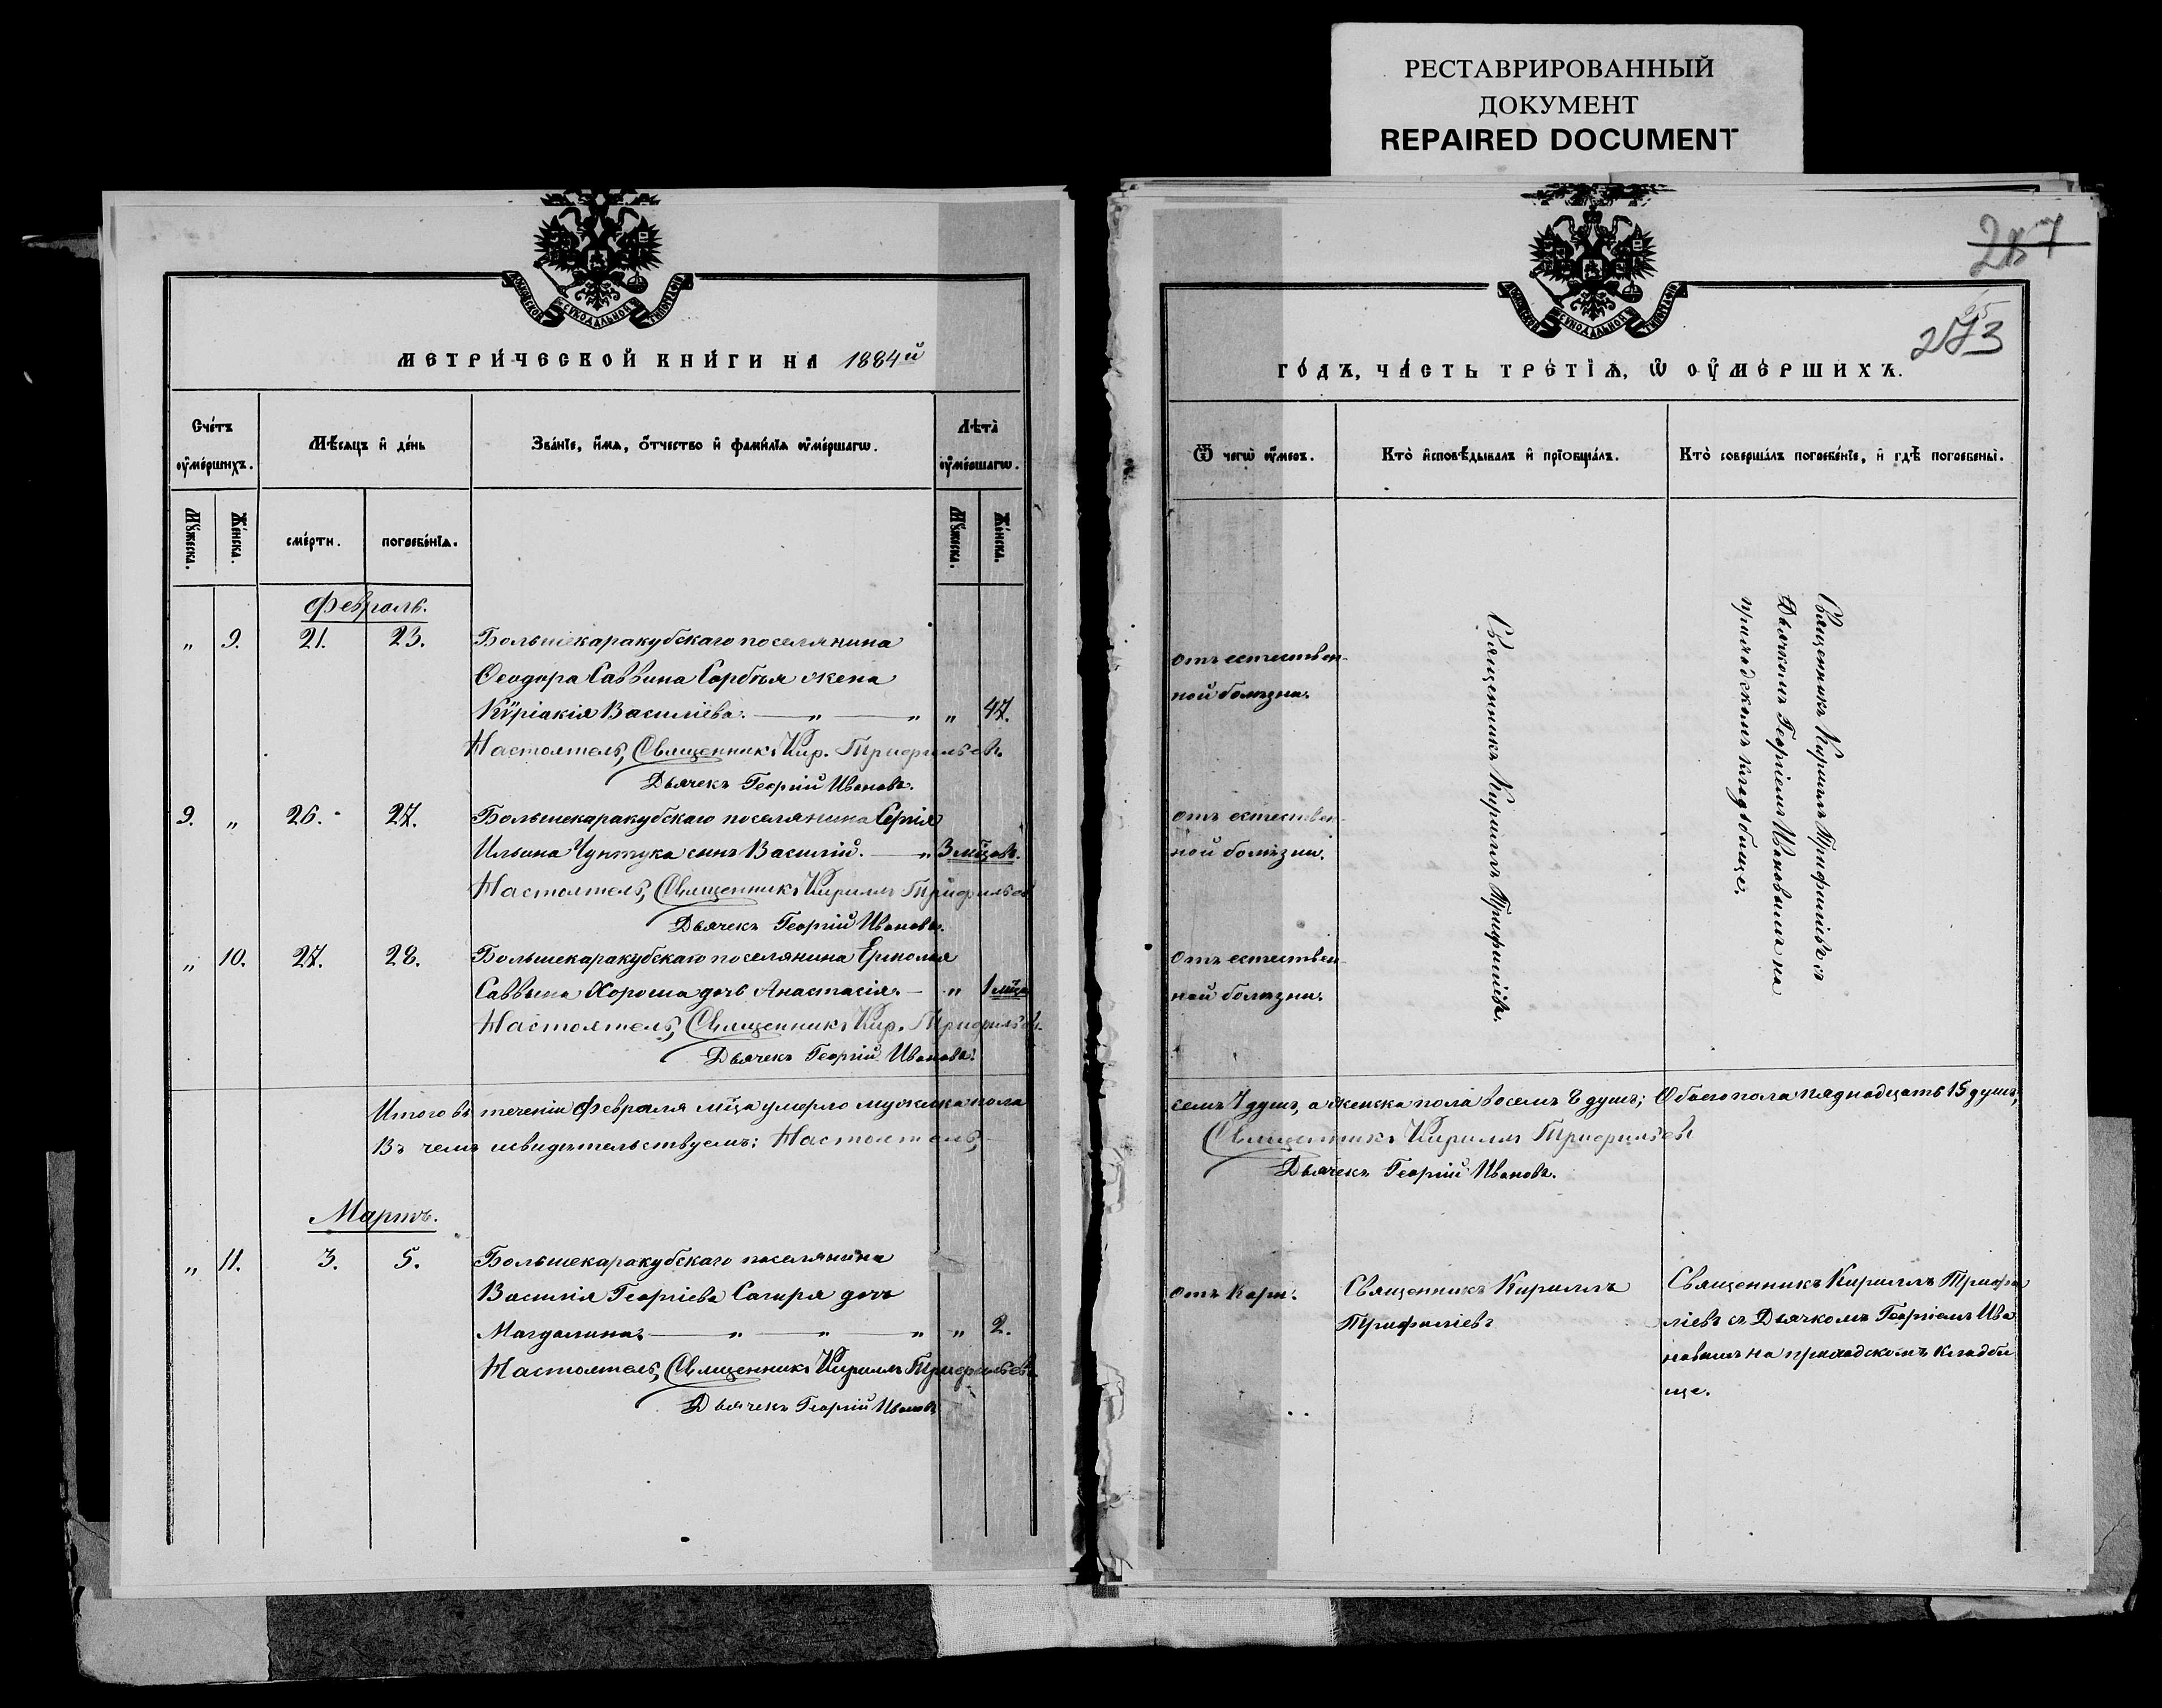 РЕСТАВРИРОВАННЫЙ
ДОКУМЕНТ
REPAIRED DOCUMENT
МЕТРИ́ЧЕСКОЙ КНИ́ГИ НА 1884й
Сче́тъ
ᲂу҆ме́ршихъ.
Мѣ́сяцъ и҆ де́нь
Зва́нїе, и҆́мя, ѻ҆́тчество и҆ фами́лїя ᲂу҆ме́ршагѡ.
Лѣта̀
ᲂу҆ме́ршагѡ.
Мꙋ́жеска.
Же́нска.
сме́рти.
погребе́нїя.
Мꙋ́жеска.
Же́нска.
Февраль.
„ 9. 21. 23. Большекаракубскаго поселянина
Ѳеодора Саввина Сарбѣя жена
Кѵріакія Василіева. — „ — „ „ 47.
Настоятель, Священникъ Кир. Трифильевъ.
Дьячекъ Георгій Ивановъ.
9. „ 26. 27. Большекаракубскаго поселянина Сергія
Ильина Чунтука сынъ Василій. — „ 3 мѣцовъ.
Настоятель, Священникъ Кириллъ Трифильевъ
Дьячекъ Георгій Ивановъ.
„ 10. 27. 28. Большекаракубскаго поселянина Ермолая
Саввина Хороша дочь Анастасія. — „ 1 мѣца
Настоятель, Священникъ Кир. Трифильевъ.
Дьячекъ Георгій Ивановъ.
Итого въ теченіи Февраля мѣца умерло мужеска пола
Въ чемъ и свидѣтельствуемъ: Настоятель,
Мартъ.
„ 11. 3. 5. Большекаракубскаго поселянина
Василія Георгіева Сагиря дочь
Магдалина. — „ — „ — „ „ 2.
Настоятель, Священникъ Кириллъ Трифильевъ.
Дьячекъ Георгій Ивановъ
257
273
ГО́ДЪ, ЧА́СТЬ ТРЕ́ТЇѦ, Ѡ҆ ОУ҆МЕ́РШИХЪ.
Ѿ чегѡ̀ ᲂу҆́меръ.
Кто̀ и҆сповѣ́дывалъ и҆ прїѡбща́лъ.
Кто̀ соверша́лъ погребе́нїе, и҆ гдѣ̀ погребены̀.
отъ естествен-
ной болѣзни.
отъ естествен-
ной болѣзни.
отъ естествен-
ной болѣзни.
Священникъ Кириллъ Трифиліевъ.
Священникъ Кириллъ Трифиліевъ съ
Дьячкомъ Георгіемъ Ивановымъ на
приходскомъ кладбище.
семь 7 душъ, а женска пола восемь 8 душъ; Обоего пола пяднадцать 15 душъ,
Священникъ Кириллъ Трифильевъ
Дьячекъ Георгій Ивановъ.
отъ Кори.
Священникъ Кириллъ
Трифиліевъ
Священникъ Кириллъ Трифи
ліевъ съ Дьячкомъ Георгіемъ Ива
новымъ на приходскомъ кладби
ще.